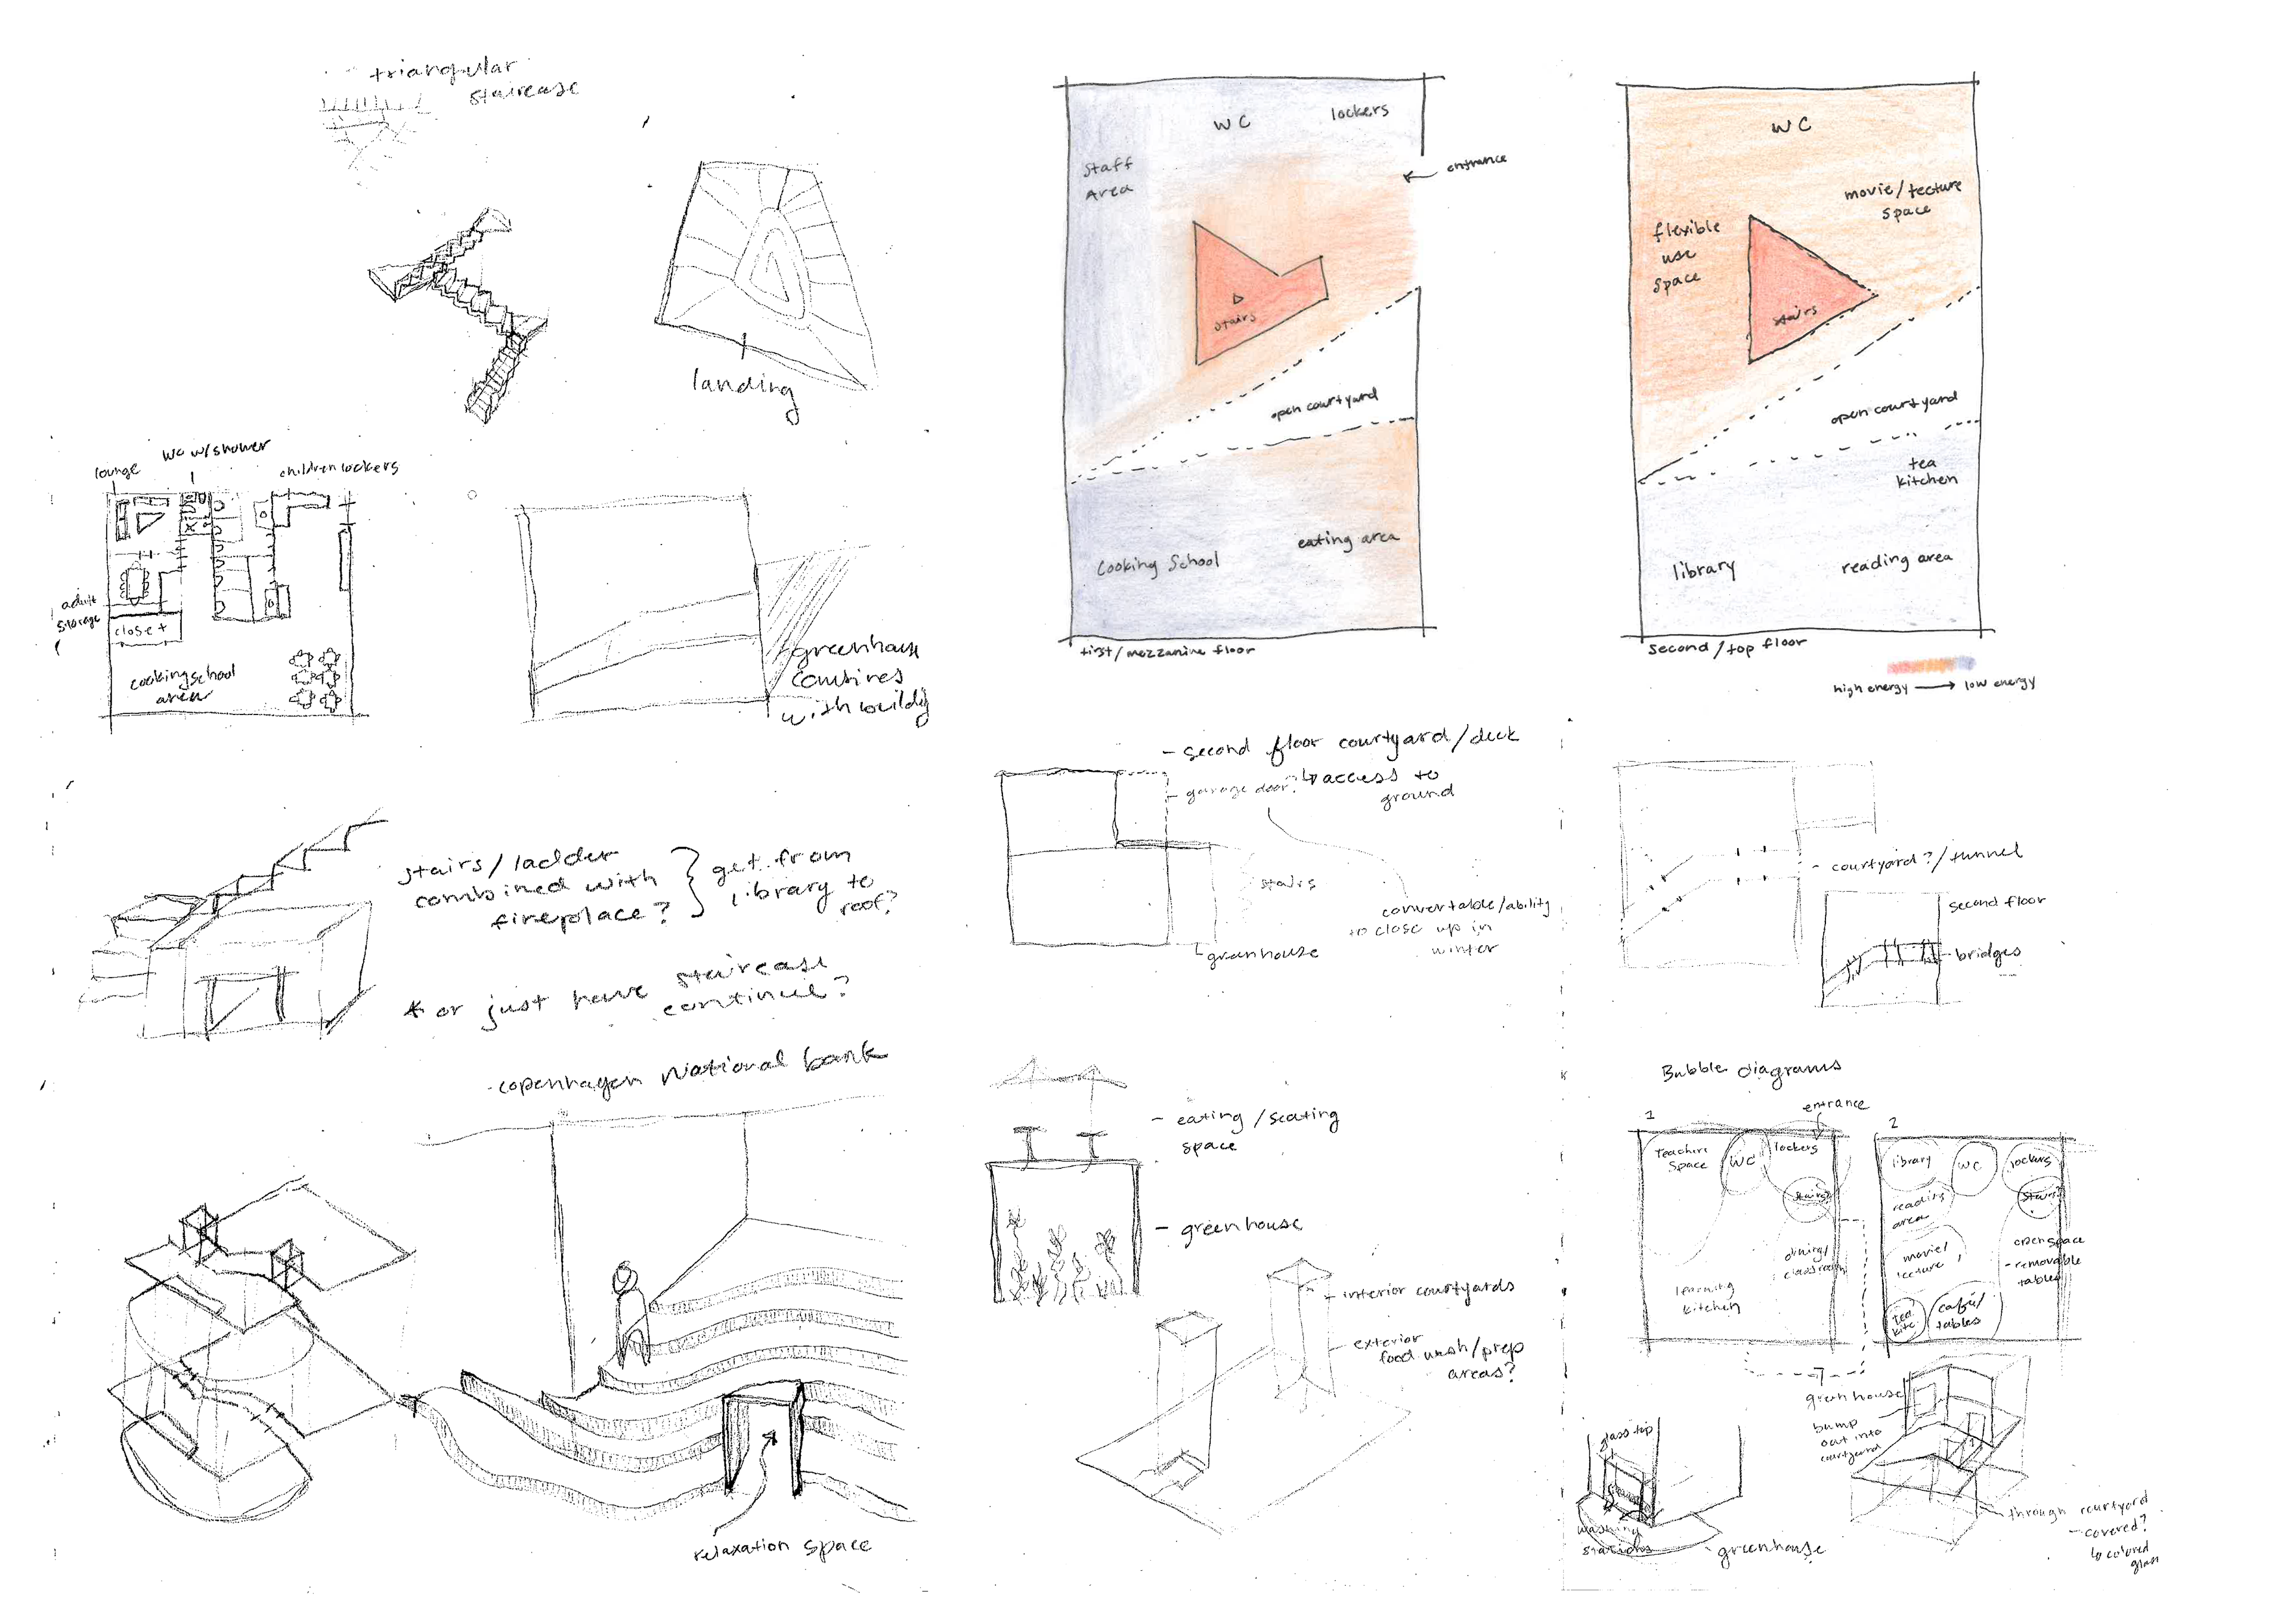 triangular
staircase
landing
lounge
WC w/shower
children lockers
adult
storage
closet
cooking school
area
greenhouse
combines
with building
stairs/ladder
combined with
fireplace?
get from
library to
roof?
* or just have staircase
continue?
-copenhagen National bank
relaxation space
WC
lockers
Staff
Area
entrance
stairs
open courtyard
eating area
Cooking School
first/mezzanine floor
WC
movie/lecture
space
flexible
use
space
stairs
open courtyard
tea
kitchen
library
reading area
second/top floor
high energy → low energy
- second floor courtyard/deck
- garage door?
↳ access to
ground
stairs
convertable/ability
to close up in
winter
greenhouse
- courtyard?/tunnel
second floor
bridges
- eating/seating
space
- greenhouse
interior courtyards
exterior
food wash/prep
areas?
Bubble diagrams
entrance
1
Teachers
Space
WC
lockers
stairs
dining/
classroom
learning
kitchen
2
library
WC
lockers
stairs
reading
area
movie/
lecture
open space
- removable
tables
tea
kitc
café/
tables
greenhouse
bump
out into
courtyard
glass top
washing
stations
greenhouse
through courtyard
- covered?
↳ colored
glass